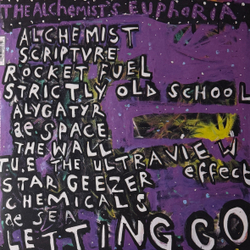 THE ALCHEMIST'S EUPHORIA
ALCHEMIST
SCRIPTVRE
ROCKET FUEL
STRICTLY OLD SCHOOL
ALYGATYR
ae SPACE
THE WALL
T.U.E THE ULTRAVIEW
effect
STARGEEZER
CHEMICALS
ae SEA
LETTING GO